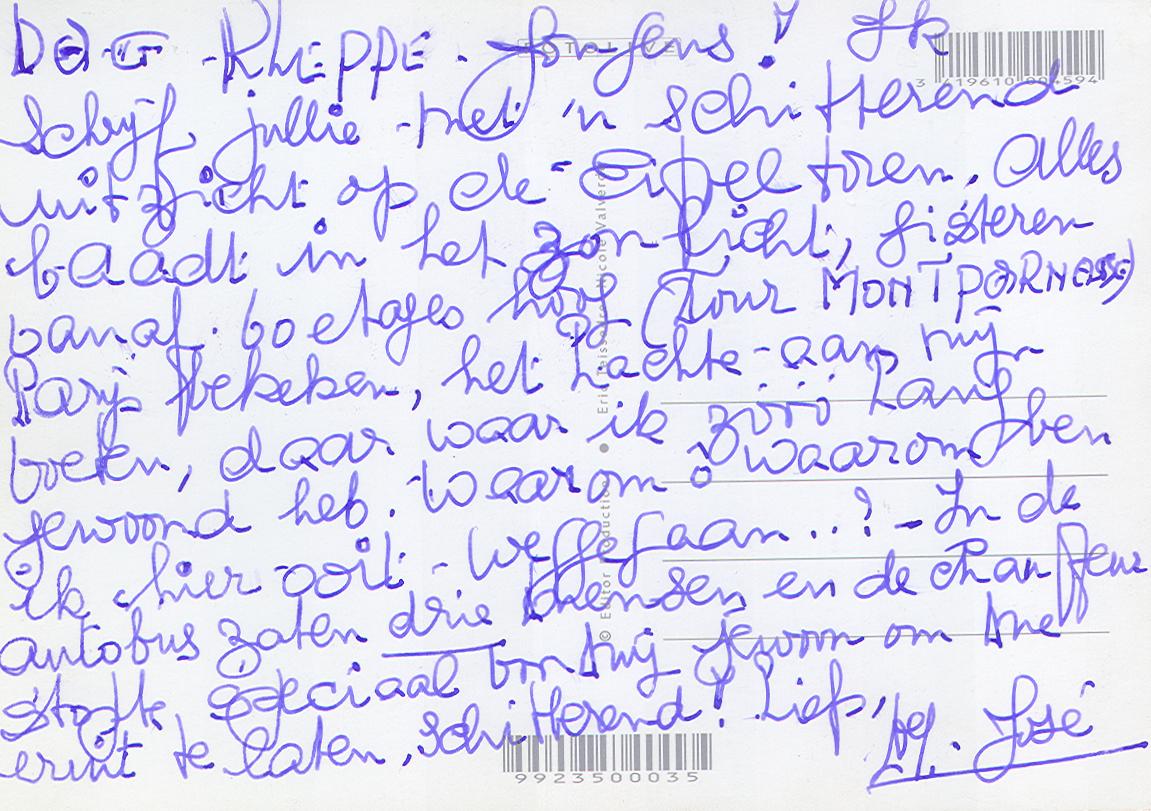 DAG KNEPPE Jongens! Ik
schrijf jullie met 'n schitterend
uitzicht op de Eifel toren. Alles
baadt in het zonlicht, gisteren
vanaf 60 etages hoog (Tour MONTPARNASSE)
Parijs bekeken, het lachte aan mijn
voeten, daar waar ik zóóó lang
gewoond heb. Waarom ô waarom ben
ik hier ooit weggegaan..? - In de
autobus zaten drie mensen en de chauffeur
stopte speciaal voor mij gewoon om me
eruit te laten, schitterend! Liefs,
José
FOTOLIVE
3 619610 004594
© Editor Production ● Eric Teissèdre Nicole Valverde
9923500035